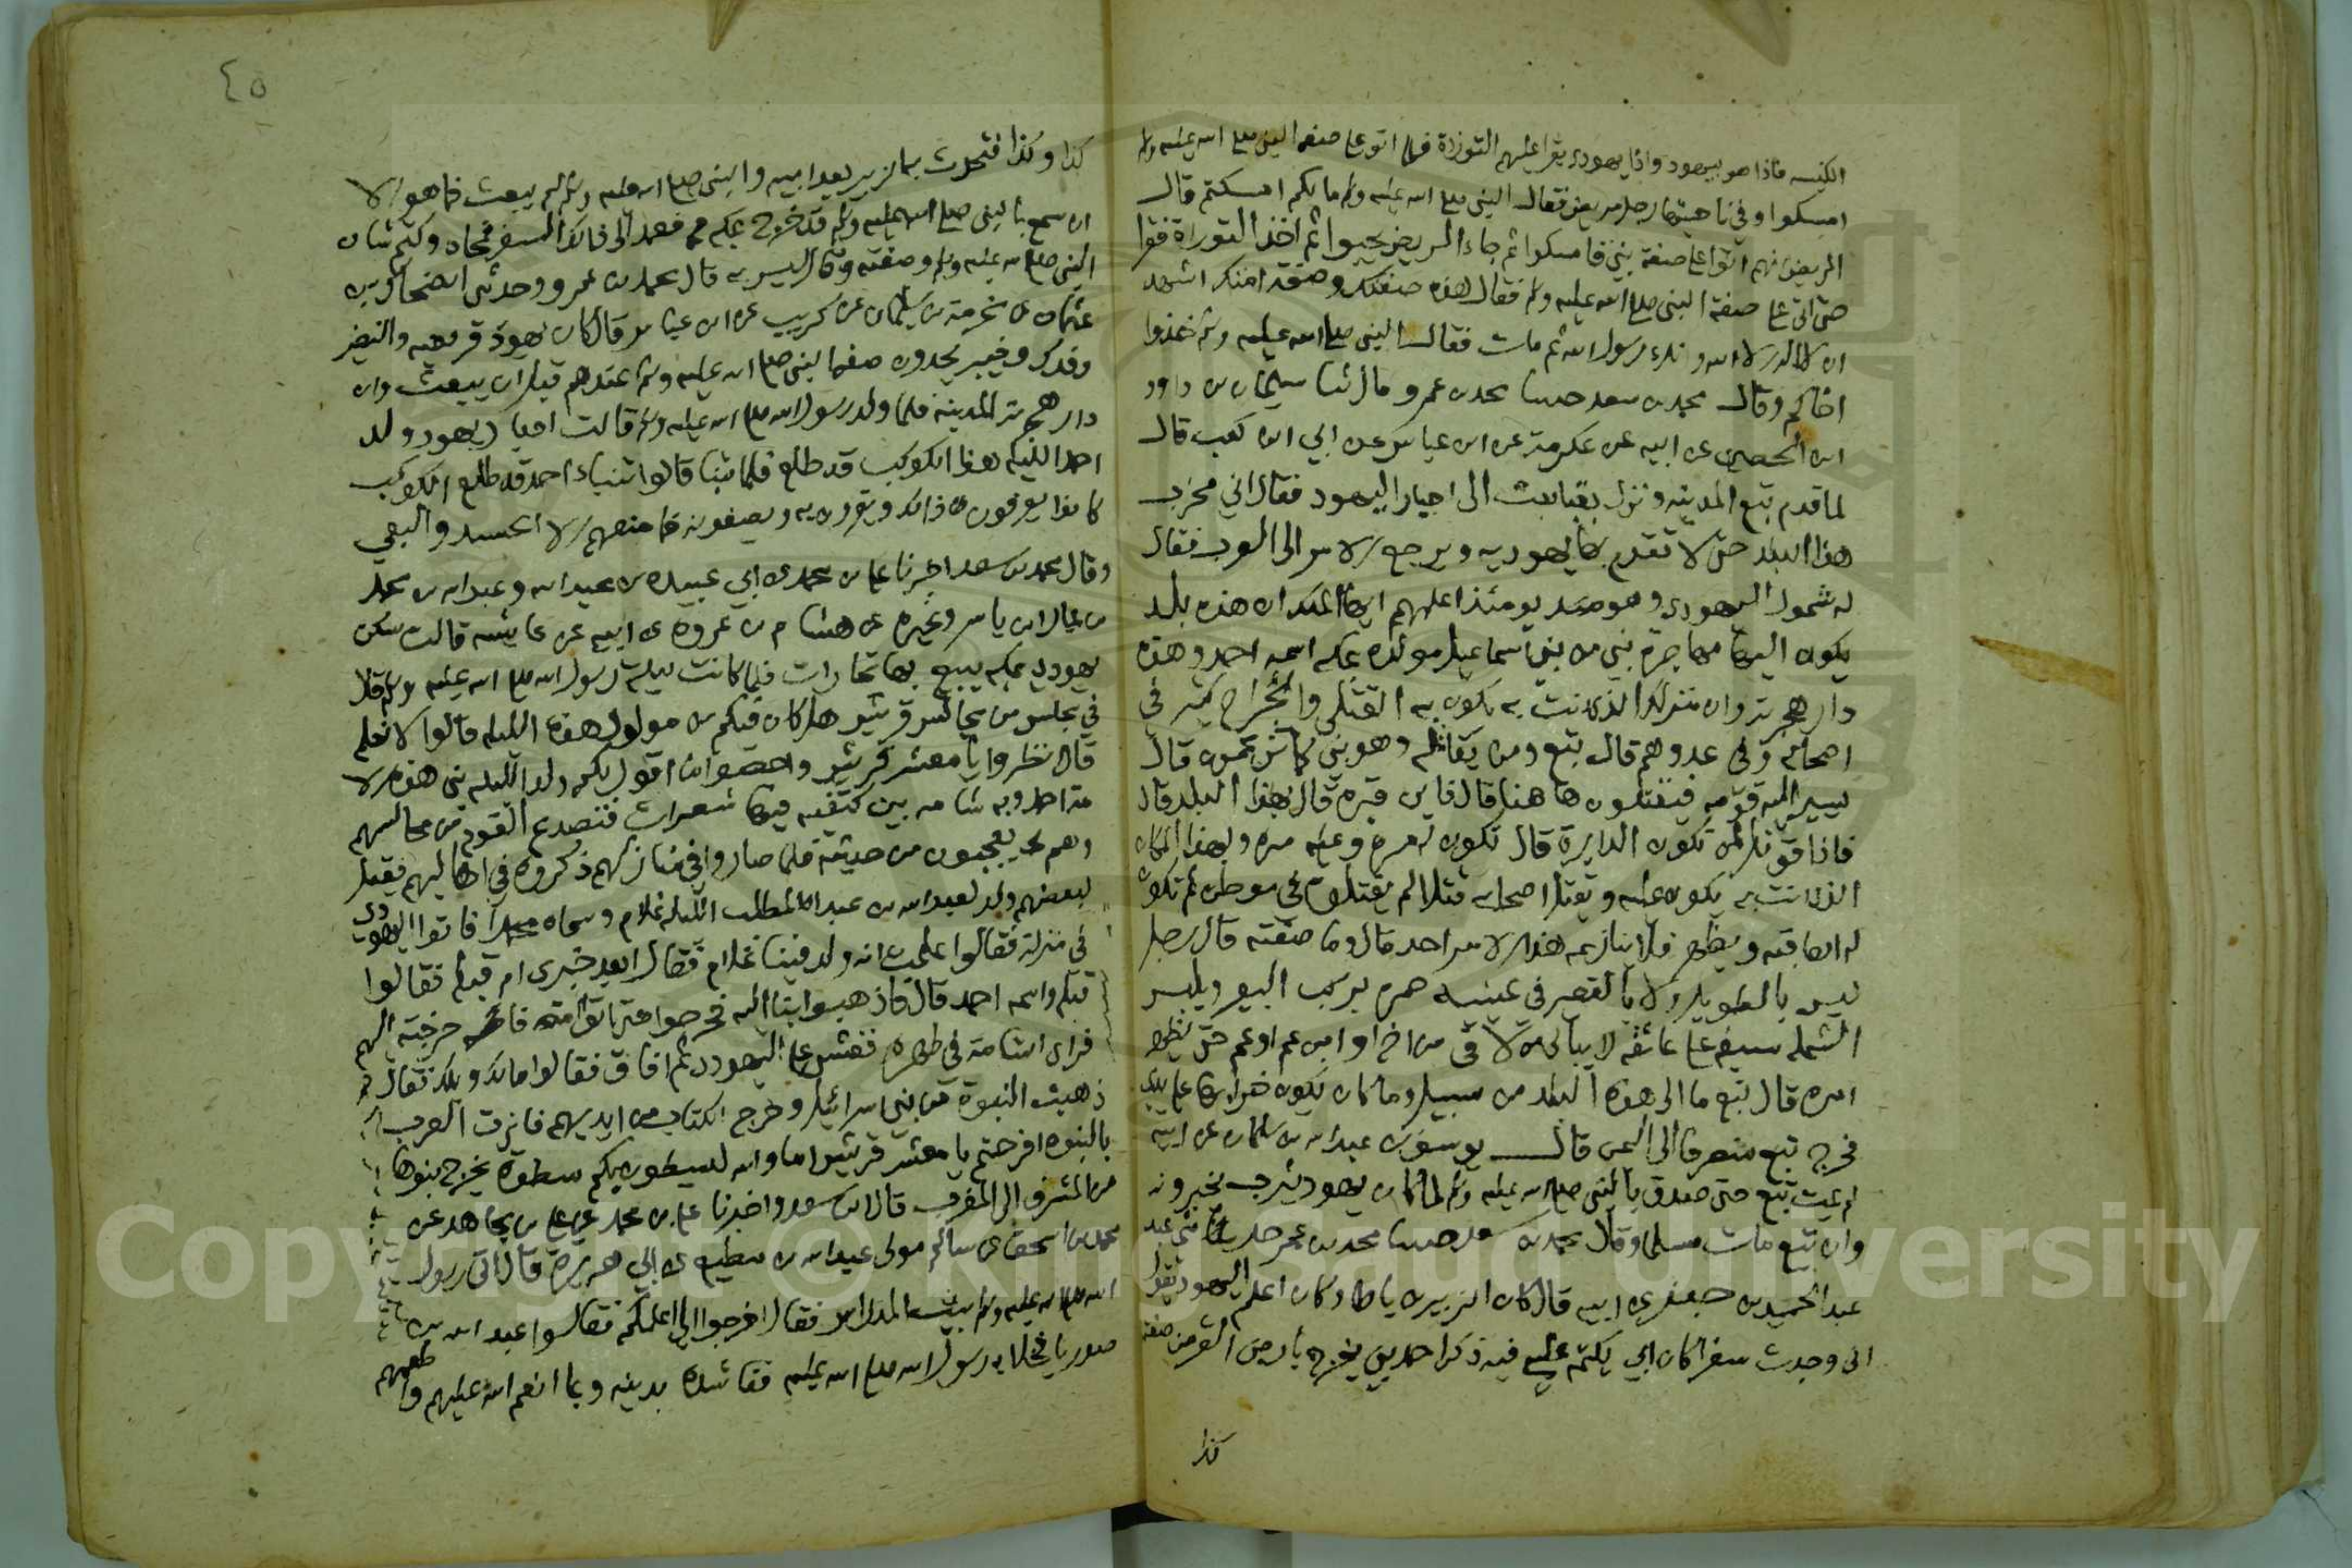 الكنيسه فاذا هو بيهود واذا يهودي يقرا عليهم التوراة فلما اتو على صفة النبي صلى الله عليه ولم
امسكوا وفي ناحيتها رجل مريض فقال النبي صلى الله عليه ولم ما لكم امسكتم قال
المريض انهم اتوا على صفة بني فامسكوا ثم جاء المريض يحبوا ثم اخذ التوراة فقرا
حتى اتى على صفة النبي صلى الله عليه ولم فقال هذه صفتك وصفة امتك اشهد
ان لا اله الا الله وانك رسول الله ثم مات فقال النبي صلى الله عليه ولم خذوا
اخاكم وقال محمد بن سعد حدثنا محمد بن عمر و قال ثنا سليمان بن داود
ابن الحصين عن ابيه عن عكرمة عن ابن عباس عن ابي ابن كعب قال
لما قدم تبع المدينه ونزل بقبا بعث الى احبار اليهود فقال اني مخرب
هذا البلد حتى لا تقوم بها يهوديه ويرجع الامر الى العرب فقال
له شمول اليهودي وهو يومئذ اعلمهم ايها الملك ان هذه بلد
يكون اليها مهاجرة بني من بني اسماعيل مولده بمكه اسمه احمد وهذه
دار هجرته وان منزلك الذي انت به يكون به القتلى والجراح كثير في
اصحابه وفي عدوهم قال تبع ومن يقاتله وهو نبي كما تزعمون قال
يسير اليه قومه فيقتتلون هاهنا قال فاين قبره قال بهذا البلد قال
فاذا قوتل لمن تكون الدايرة قال تكون له مرة وعليه مره وبهذا المكان
الذي انت به يكون عليه ويقتل اصحابه قتلا لم يقتلوه في موطن ثم تكون
له العاقبه ويظهر فلا ينازعه هذا الامر احد قال وما صفته قال رجل
ليس بالطويل ولا بالقصير في عينيه حمره يركب البعير ويلبس
الشمله سيفه على عاتقه لا يبالي من لاقى من اخ او ابن عم او عم حتى يظهر
امره قال تبع ما الى هذه البلد من سبيل وما كان يكون خرابها على يدي
فخرج تبع منصرفا الى اليمن قال يونس بن عبد الله بن سلمان عن ابيه
لم يمت تبع حتى صدق بالنبي صلى الله عليه ولم لما كان يهود يثرب يخبرونه
وان تبع مات مسلما وقال محمد بن سعد حدثنا محمد بن عمر حدثني عبد
عبد الحميد بن جعفر عن ابيه قال كان الزبير بن باطا وكان اعلم اليهود يقول
اني وجدت سفرا كان ابي يكتمه علي فيه ذكر احمد نبي يخرج بارض القرض صفته
كذا
٤٥
كذا وكذا فتحدث به الزبير بعد ابيه والنبي صلى الله عليه ولم لم يبعث فما هو الا
ان سمع بالنبي صلى الله عليه ولم قد خرج بمكه فعمد الى ذلك السفر فمحاه وكتم شان
النبي صلى الله عليه ولم وصفته وقال ليس به قال محمد بن عمر وحدثني الضحاك بن
عثمان عن مخرمة بن سليمان عن كريب عن ابن عباس قال كان يهود قريظه والنضير
وفدك وخيبر يجدون صفة النبي صلى الله عليه ولم عندهم قبل ان يبعث وان
دار هجرته المدينة فلما ولد رسول الله صلى الله عليه ولم قالت احبار يهود ولد
احمد الليله هذا الكوكب قد طلع فلما تنبا قالوا تنباء احمد قد طلع الكوكب
كانوا يعرفون ذلك ويقرون به ويصفونه فما منعهم الا الحسد والبغي
وقال محمد بن سعد اخبرنا علي بن محمد عن ابي عبيده بن عبد الله وعبد الله بن محمد
بن عمار ابن ياسر وغيره عن هشام بن عروه عن ابيه عن عايشه قالت سكن
يهودي بمكه يبيع بها تجارات فلما كانت ليلة رسول الله صلى الله عليه ولم قال
في مجلس من مجالس قريش هل كان فيكم من مولود هذه الليله قالوا لا نعلم
قال انظروا يا معشر قريش واحصوا ما اقول لكم ولد الليله نبي هذه الامة
احمد وبه شامه بين كتفيه فيها شعرات فتصدع القوم من مجالسهم
وهم يعجبون من حديثه فلما صاروا في منازلهم ذكروه في اهاليهم فقيل
لبعضهم ولد لعبد الله بن عبد المطلب الليله غلام وسماه محمدا فاتوا اليهودي
في منزله فقالوا علمت انه ولد فينا غلام فقال ابعد خبري ام قبله فقالوا
قبله واسمه احمد قال فاذهبوا بنا اليه فخرجوا حتى اتوا امه فاخرجته اليهم
فراى الشامة في ظهره فغشي على اليهودي ثم افاق فقالوا مالك ويلك فقال
ذهبت النبوة من بني اسرائيل وخرج الكتاب من ايديهم فازت العرب
بالنبوه افرحتم يا معشر قريش اما والله ليسطون بكم سطوة يخرج نبوها
من المشرق الى المغرب قال ابن سعد واخبرنا علي بن محمد عن علي بن مجاهد عن
محمد بن اسحق عن سالم مولى عبد الله بن مطيع عن ابي هريرة قال اتى رسول
الله صلى الله عليه ولم بيت المدارس فقال اخرجوا الي اعلمكم فقالوا عبد الله بن
صوريا فخلا به رسول الله صلى الله عليه فناشده بدينه وبما انعم الله عليهم واطعمهم
Copyright © King Saud University